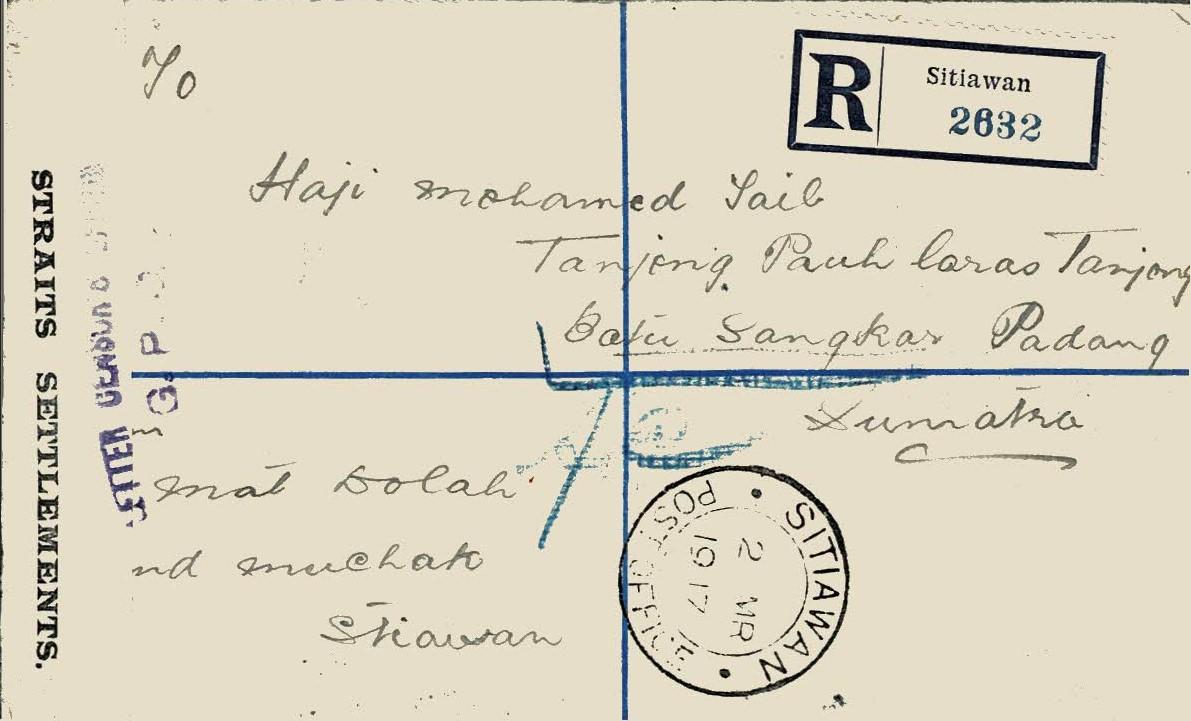 To
R Sitiawan
2632
Haji Mohamed Taib
Tanjong Pauh laras Tanjong
Batu Sangkar Padang
Sumatra
STRAITS SETTLEMENTS.
G. P.
m
mat Dolah
nd muchak
Stiawan
SITIAWAN
POST OFFICE
2 MR
1917